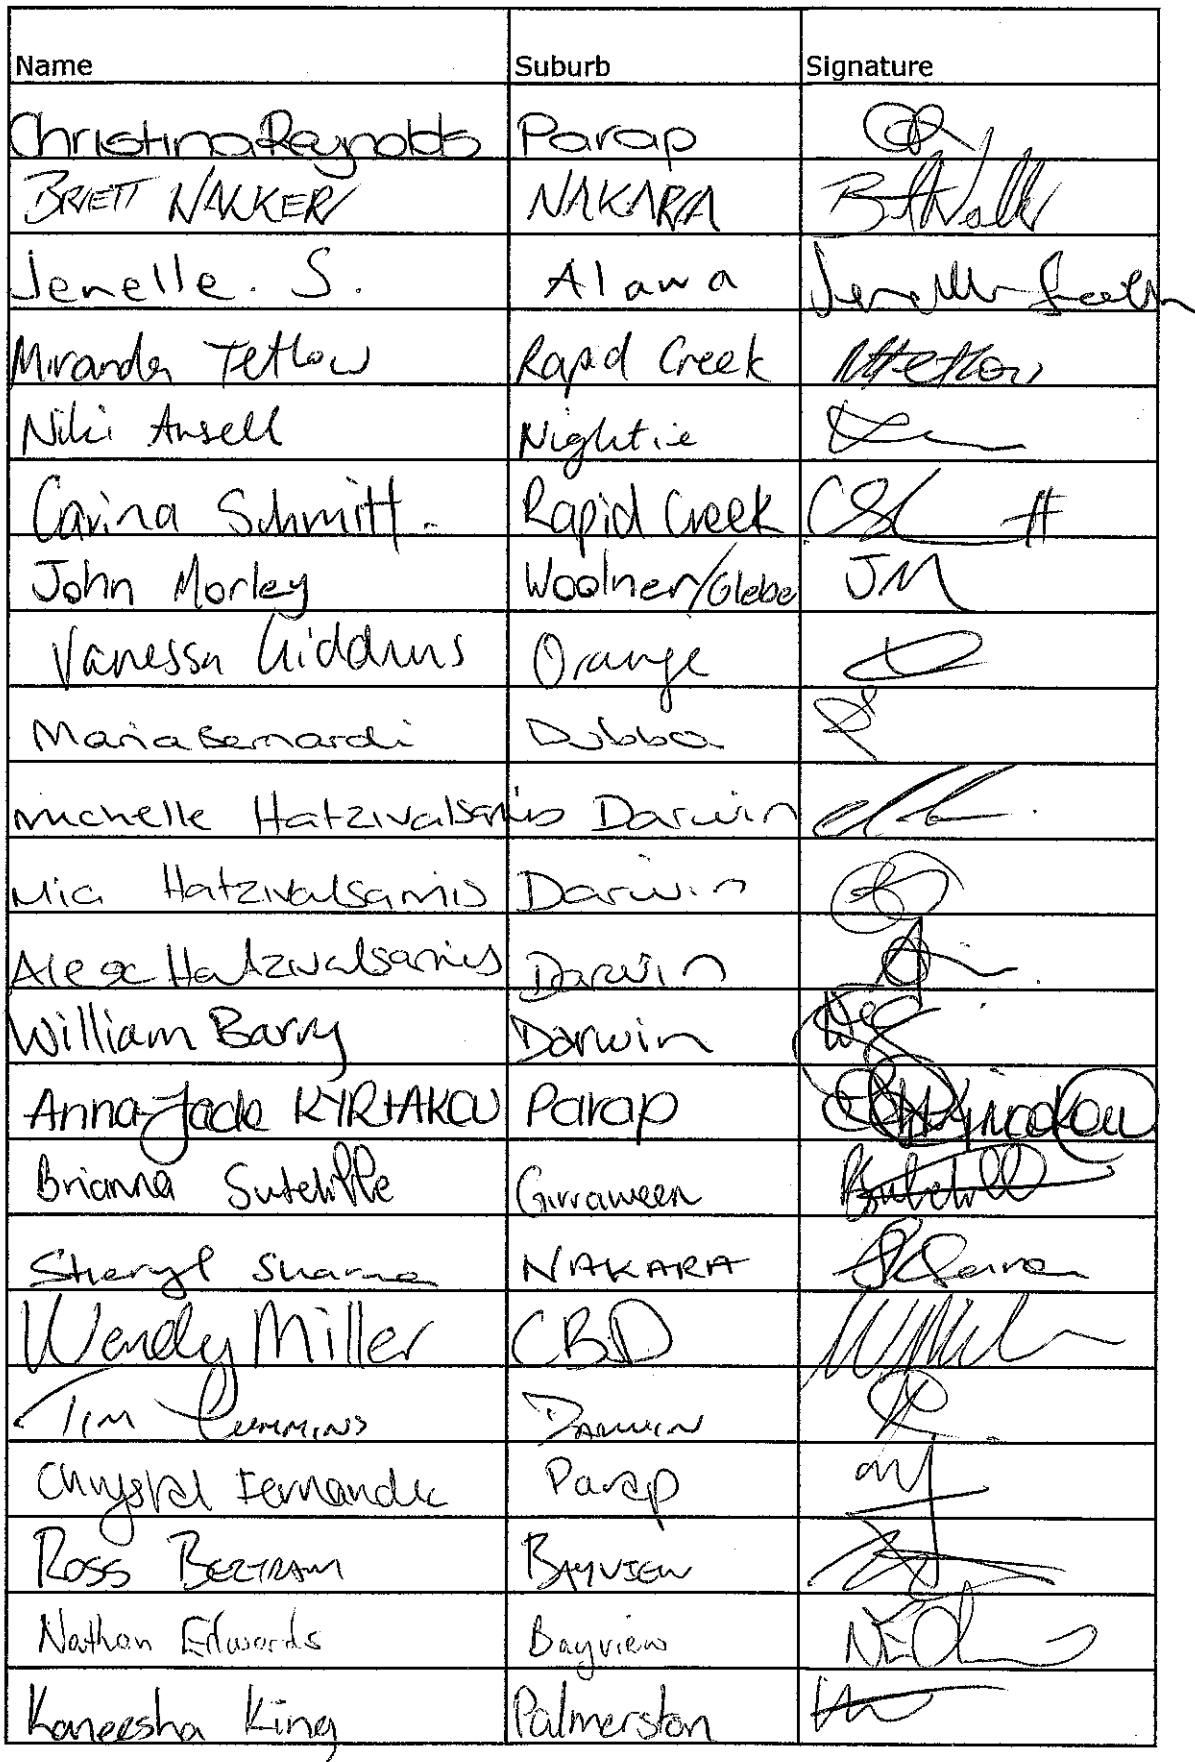 Name Suburb Signature
Christina Reynolds Parap CR
BRETT WALKER NAKARA B Walk
Jenelle. S. Alawa Jenelle
Miranda Tetlow Rapid Creek MTetlow
Niki Ansell Nightie
Carina Schmitt. Rapid Creek CS
John Morley Woolner/Glebe JM
Vanessa Giddins Orange
Maria Bernardi Dubbo
Michelle Hatzivalsamis Darwin
Mia Hatzivalsamis Darwin
Alex Hatzivalsamis Darwin
William Barry Darwin
Anna-Jade KYRIAKOU Parap Kyriakou
Brianna Sutcliffe Girraween BSutcliff
Sheryl NAKARA
Wendy Miller CBD WMil
Tim Cummins Darwin
Chrystal Fernande Parap
Ross BERTRAM BAYVIEW
Nathan Edwards Bayview NEd
Kaneesha King Palmerston